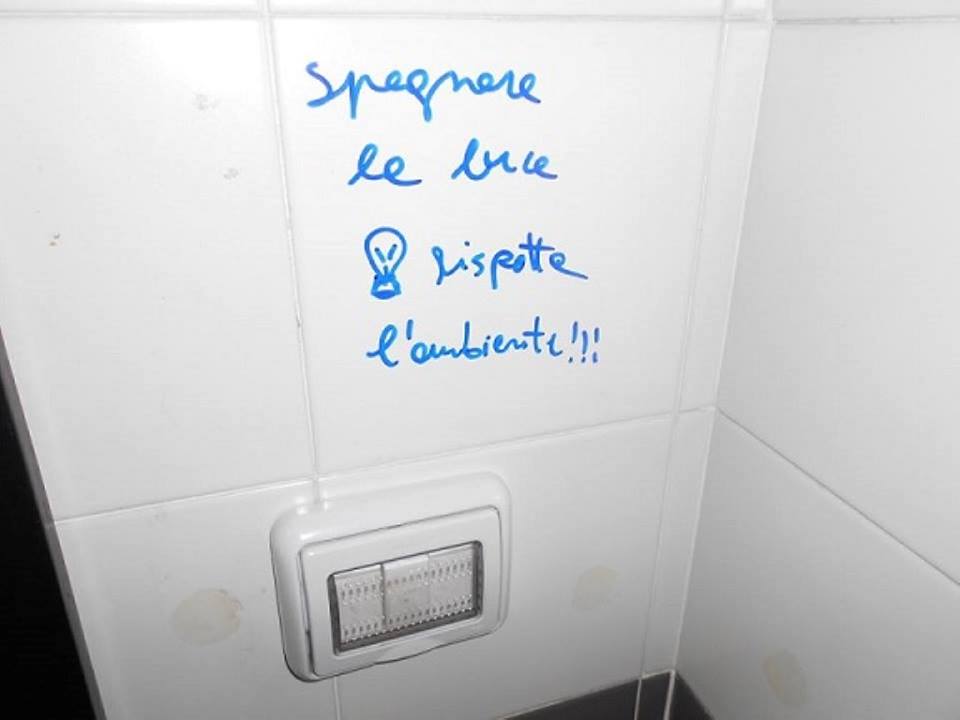 Spegnere
la luce
rispetta
l'ambiente!!!